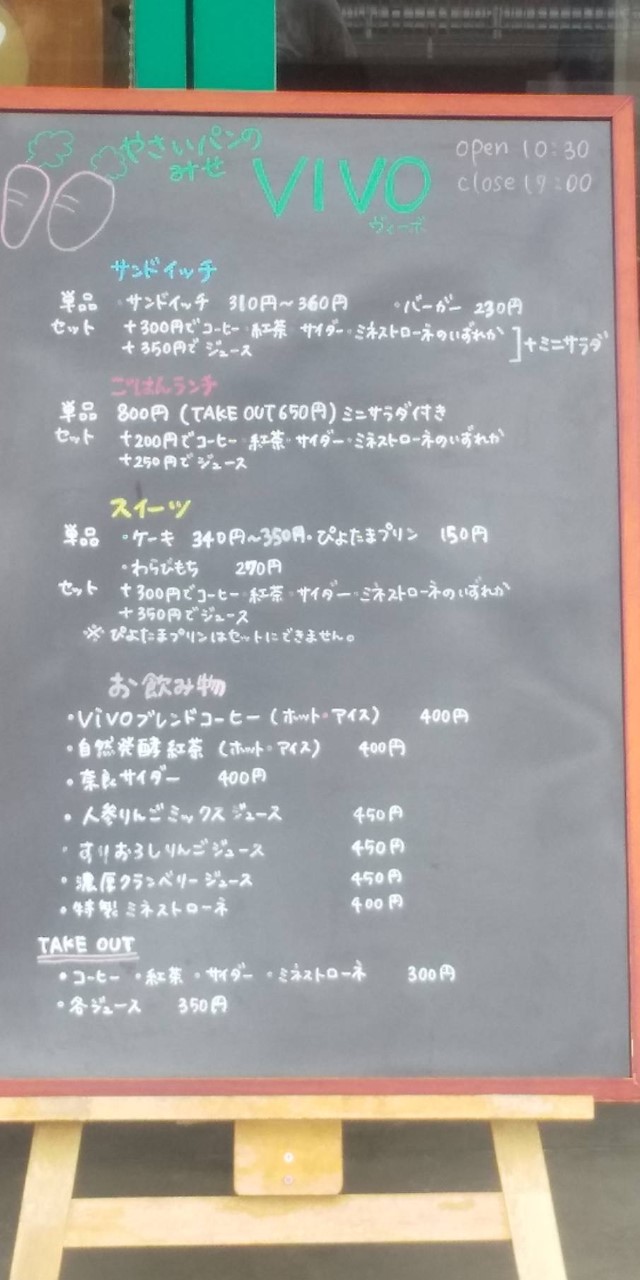 やさいパンの
みせ
VIVO
ヴィーボ
open 10:30
close 19:00
サンドイッチ
単品 ・サンドイッチ 310円〜360円 ・バーガー 230円
セット +300円でコーヒー・紅茶・サイダー・ミネストローネのいずれか
+350円でジュース
+ミニサラダ
ごはんランチ
単品 800円 (TAKE OUT 650円) ミニサラダ付き
セット +200円でコーヒー・紅茶・サイダー・ミネストローネのいずれか
+250円でジュース
スイーツ
単品 ・ケーキ 340円〜350円・ぴよたまプリン 150円
・わらびもち 270円
セット +300円でコーヒー・紅茶・サイダー・ミネストローネのいずれか
+350円でジュース
※ ぴよたまプリンはセットにできません。
お飲み物
・ViVOブレンドコーヒー (ホット・アイス) 400円
・自然発酵紅茶 (ホット・アイス) 400円
・奈良サイダー 400円
・人参りんごミックスジュース 450円
・すりおろしりんごジュース 450円
・濃厚クランベリージュース 450円
・特製ミネストローネ 400円
TAKE OUT
・コーヒー ・紅茶 ・サイダー ・ミネストローネ 300円
・各ジュース 350円